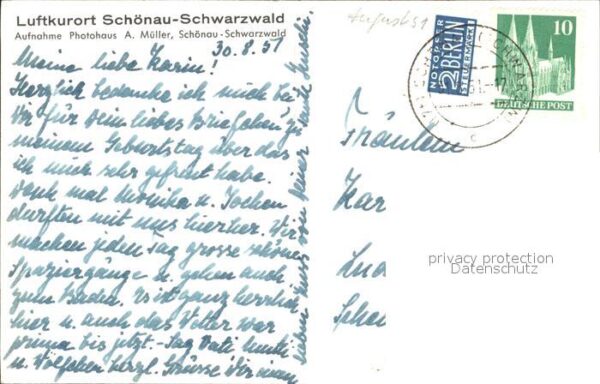 Luftkurort Schönau-Schwarzwald
Aufnahme Photohaus A. Müller, Schönau-Schwarzwald
30.8.51
Meine liebe Karin!
Herzlich bedanke ich mich bei
Dir für Dein liebes Briefchen zu
meinem Geburtstag über das
ich mich sehr gefreut habe.
Denk mal Monika u. Jochen
durften mit uns hierher. Wir
machen jeden Tag grosse schöne
Spaziergänge u. gehen auch
zum Baden. Es ist ganz herrlich
hier u. auch das Wetter war
prima bis jetzt. Sag Vati Mutti
u. Wölfchen herzl. Grüsse Dir einen
lieben Kuss von Deiner
August 51
NOTOPFER
2 BERLIN
STEUERMARKE
10
DEUTSCHE POST
c
Fräulein
Kar
privacy protection
Datenschutz